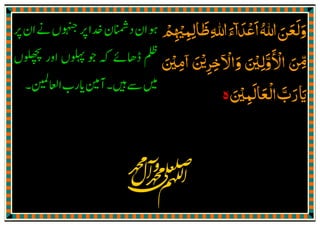 وَلَعَنَ اللهُ اَعْدَآءَ اللهِ ظَالِمِیْهِمْ
مِّنَ الْاَوَّلِیْنَ وَالْاٰخِرِیْنَ اٰمِیْنَ
یَارَبَّ الْعَالَمِیْنَ
ہو ان دشمنان خدا پر جنہوں نے ان پر
ظلم ڈھائے کہ جو پہلوں اور پچھلوں
میں سے ہیں۔ آمین یا رب العالمین۔
اللهم صل علی محمد وآل محمد